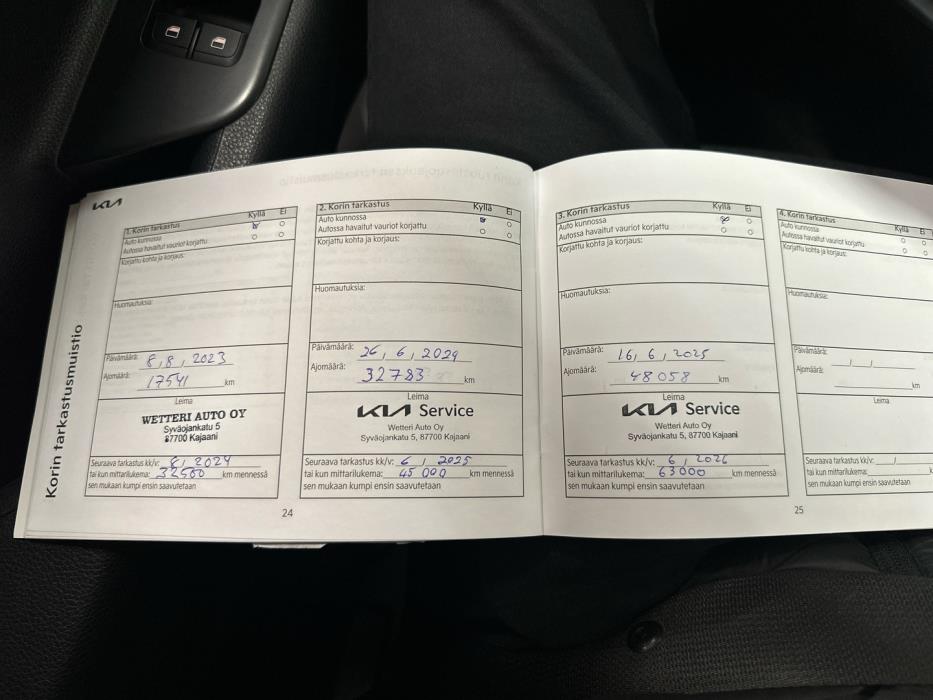 KIA
Korin tarkastusmuistio
1. Korin tarkastus Kyllä Ei
Auto kunnossa
Autossa havaitut vauriot korjattu
Korjattu kohta ja korjaus:
Huomautuksia:
Päivämäärä: 8, 8, 2023
Ajomäärä: 17541 km
Leima
WETTERI AUTO OY
Syväojankatu 5
87700 Kajaani
Seuraava tarkastus kk/v: 8, 2024
tai kun mittarilukema: 32500 km mennessä
sen mukaan kumpi ensin saavutetaan
2. Korin tarkastus Kyllä Ei
Auto kunnossa
Autossa havaitut vauriot korjattu
Korjattu kohta ja korjaus:
Huomautuksia:
Päivämäärä: 26, 6, 2024
Ajomäärä: 32783 km
Leima
KIA Service
Wetteri Auto Oy
Syväojankatu 5, 87700 Kajaani
Seuraava tarkastus kk/v: 6, 2025
tai kun mittarilukema: 45000 km mennessä
sen mukaan kumpi ensin saavutetaan
24
3. Korin tarkastus Kyllä Ei
Auto kunnossa
Autossa havaitut vauriot korjattu
Korjattu kohta ja korjaus:
Huomautuksia:
Päivämäärä: 16, 6, 2025
Ajomäärä: 48058 km
Leima
KIA Service
Wetteri Auto Oy
Syväojankatu 5, 87700 Kajaani
Seuraava tarkastus kk/v: 6, 2026
tai kun mittarilukema: 63000 km mennessä
sen mukaan kumpi ensin saavutetaan
4. Korin tarkastus Kyllä Ei
Auto kunnossa
Autossa havaitut vauriot korjattu
Korjattu kohta ja korjaus:
Huomautuksia:
Päivämäärä: / /
Ajomäärä: km
Leima
Seuraava tarkastus kk/v: /
tai kun mittarilukema:
sen mukaan kumpi ensin saavutetaan
25